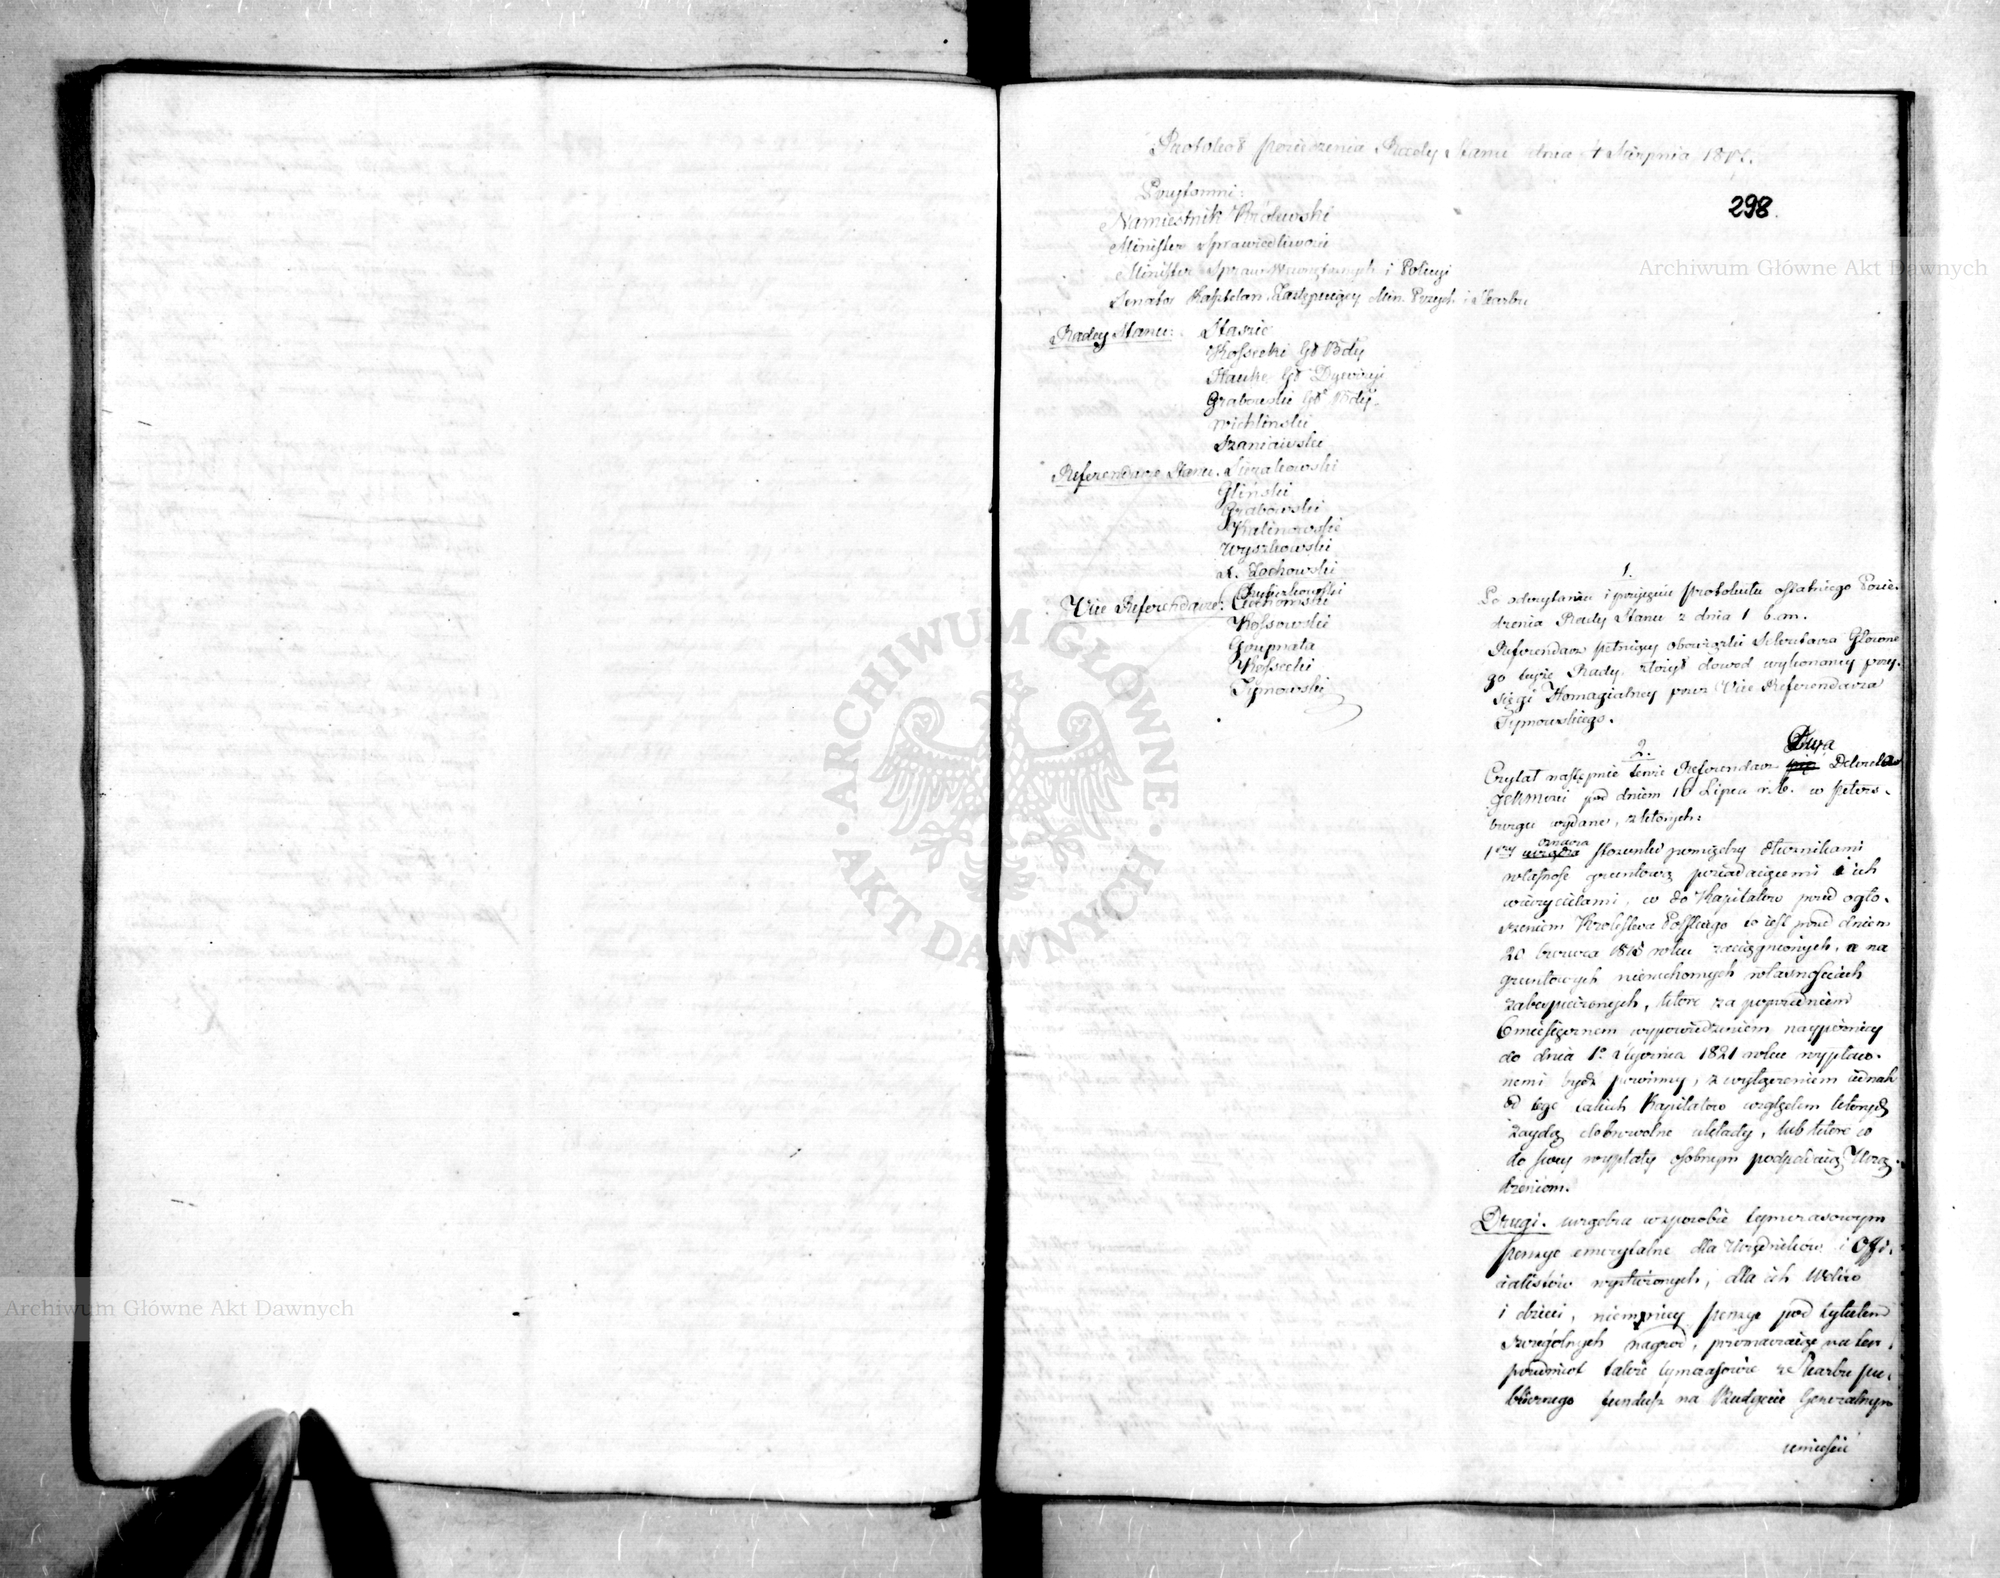 Protokół Posiedzenia Rady Stanu dnia 4 Sierpnia 1817.
298
Przytomni:
Namiestnik Królewski
Minister Sprawiedliwości
Minister Spraw Wewnętrznych i Policyi
Senator Kasztelan Zastępuiący Min. Przych. i Skarbu
Radcy Stanu: Staszic
Kossecki Gł Bdy
Hauke Gł Dywizyi
Grabowski Gł Bdy
Wichlinski
Szaniawski
Referendarze Stanu. Sierakowski
Gliński
Grabowski
Kalinowski
Wyszkowski
A. Żochowski
Vice Referendarze: Ciechomski
Kossowski
Kossecki
Tymowski
1.
Po odczytaniu i przyięciu protokułu ostatniego Posie-
dzenia Rady Stanu z dnia 1 b.m.
Referendarz pełniący obowiązki Sekretarza Główne
go teyże Rady, złożył dowod wykonaney przy-
sięgi Homagialney przez Vice Referendarza
Tymowskiego.
2. Dwa
Czytał następnie tenże Referendarz Dekreta
pod dniem 16 Lipca r.b. w Peters-
burgu wydane, z których:
1szy oznacza stosunki pomiędzy dłużnikami
własność gruntową posiadaiącemi i ich
wierzycielami, co do Kapitałow przed ogło-
szeniem Krolestwa Polskiego to iest przed dniem
20 Czerwca 1815 roku zaciągnionych, a na
gruntowych nieruchomych własnościach
zabezpieczonych, które za poprzedniem
6 miesięcznem wypowiedzeniem naypóźniey
do dnia 1o Stycznia 1821 roku wypłaco-
nemi bydź powinny, z wyłączeniem iednak
od tego takich Kapitałow względem których
zaydą dobrowolne układy, lub które co
do swey wypłaty osobnym podpadaią Urzą-
dzeniom.
Drugi. urządza w sposobie tymczasowym
pensye emerytalne dla Urzędników i Offi-
cialistów wysłużonych, dla ich Wdów
i dzieci, niemniey pensye pod tytułem
szczególnych nagrod, przeznaczaiąc na ten
przedmiot także tymczasowie ze Skarbu pu-
blicznego fundusz na Budżecie Generalnym
umieścić
Archiwum Główne Akt Dawnych
Archiwum Główne Akt Dawnych
ARCHIWUM GŁÓWNE AKT DAWNYCH